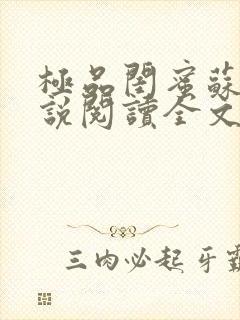 極品閨蜜蘇
說閱讀全文
三肉必起牙霸